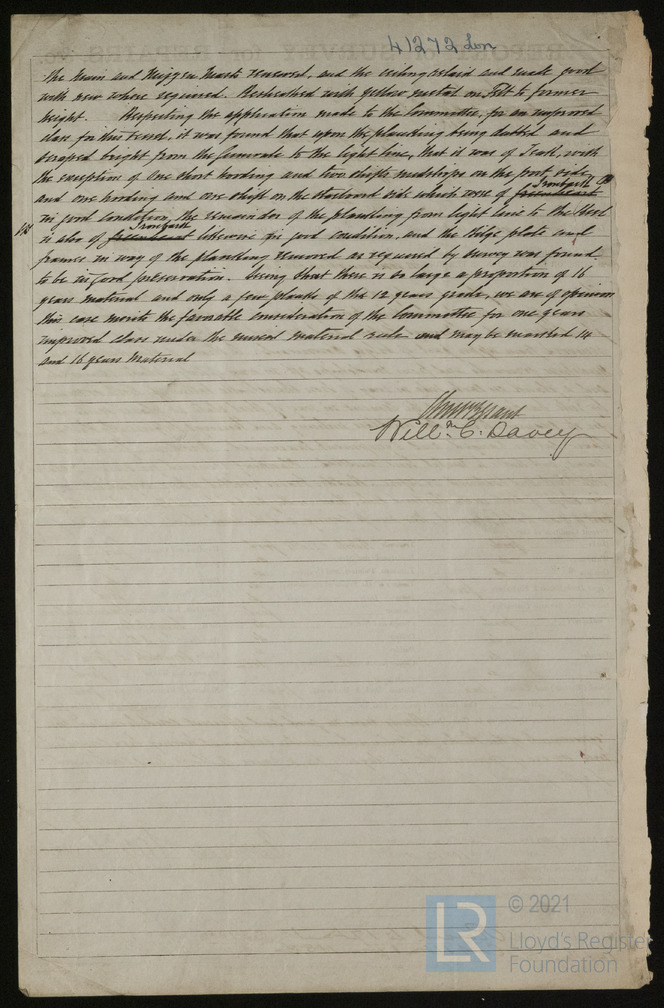 41272 Lon
the Main and Mizzen Masts renewed, and the ceiling relaid and made good
with new where required. Resheathed with yellow metal on Felt to former
height. Respecting the application made to the Committee, for an improved
class for this vessel, it was found that upon the planking being dubbed and
scraped bright from the Gunwale to the light line, that it was of Teak, with
the exception of one short hooding and two shifts midships on the port side
and one hooding and one shift on the starboard side which were of greenheart Ironbark
in good condition, the remainder of the planking from light line to the Keel
is also of greenheart Ironbark likewise in good condition, and the Ridge plate and
frames in way of the planking removed as required by survey was found
to be in good preservation. Seeing that there is so large a proportion of 16
years material and only a few planks of the 12 years grade, we are of opinion
this case merits the favorable consideration of the Committee for one years
improved class under the mixed material rule and may be marked 14
and 16 years Material
Willm C. Davey
© 2021
LR
Lloyd's Register
Foundation